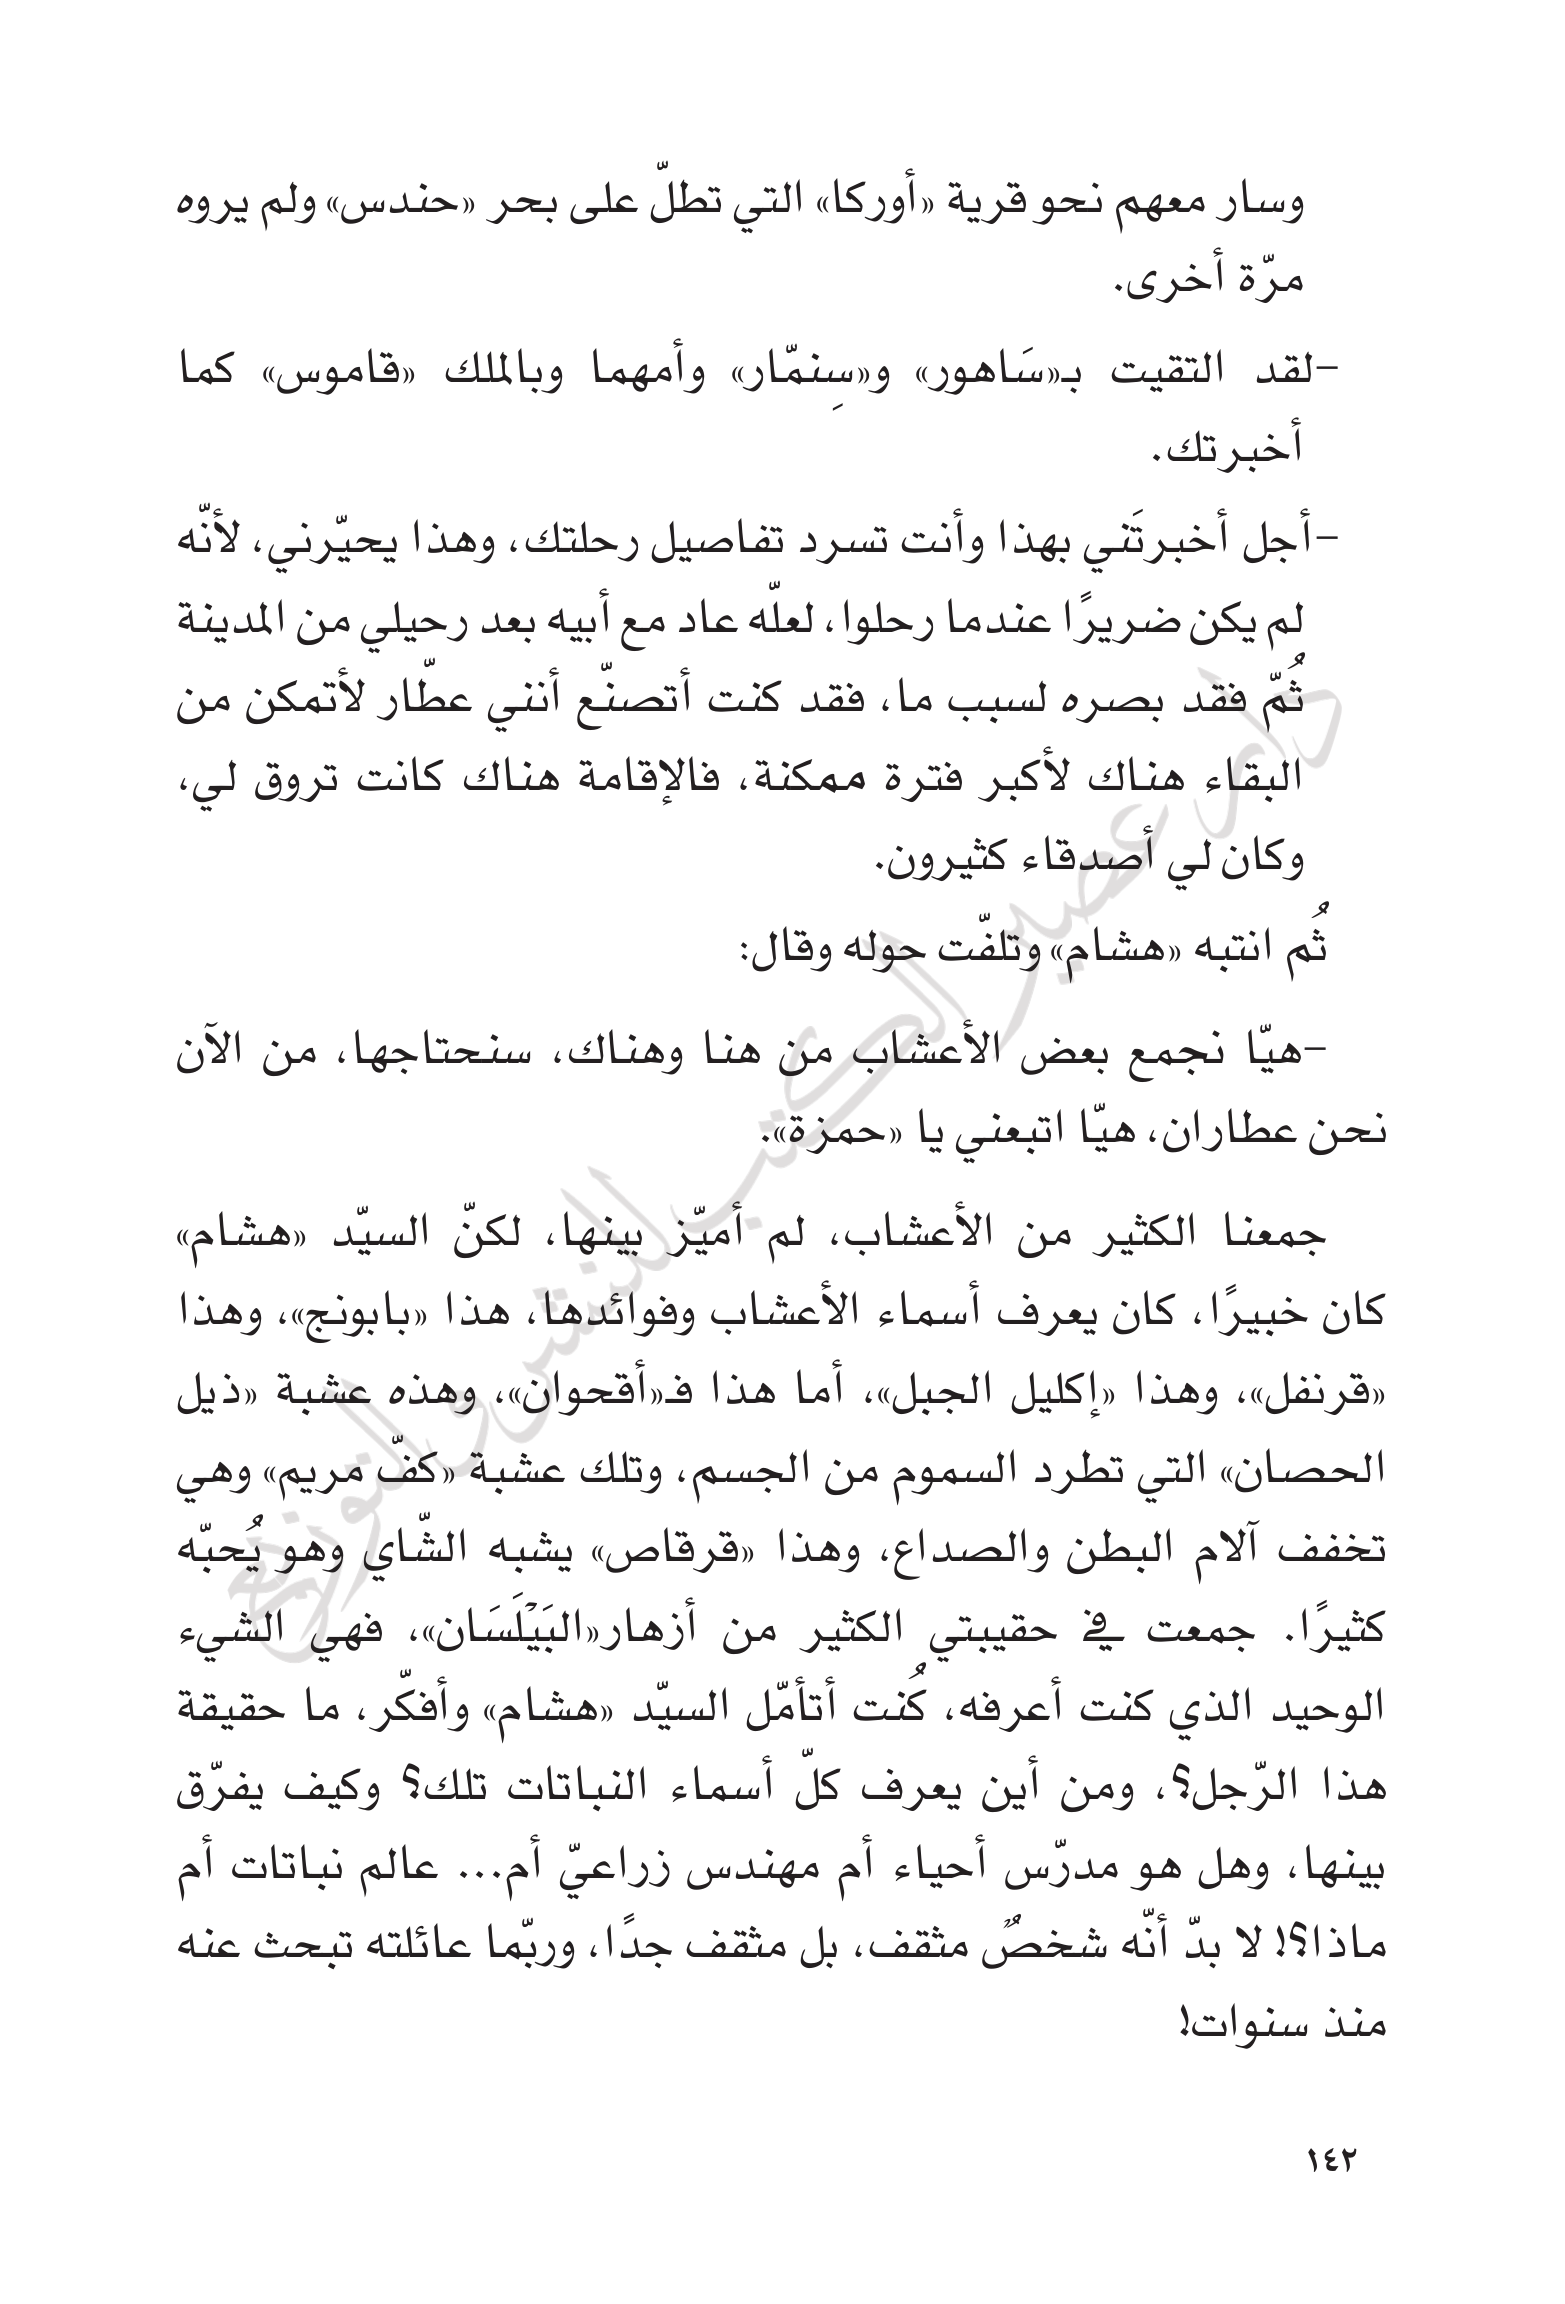 وسار معهم نحو قرية «أوركا» التي تطلّ على بحر «حندس» ولم يروه
مرّة أخرى.
-لقد التقيت بـ«سَاهور» و«سِنمّار» وأمهما وبالملك «قاموس» كما
أخبرتك.
-أجل أخبرتَني بهذا وأنت تسرد تفاصيل رحلتك، وهذا يحيّرني، لأنّه
لم يكن ضريرًا عندما رحلوا، لعلّه عاد مع أبيه بعد رحيلي من المدينة
ثُمّ فقد بصره لسبب ما، فقد كنت أتصنّع أنني عطّار لأتمكن من
البقاء هناك لأكبر فترة ممكنة، فالإقامة هناك كانت تروق لي،
وكان لي أصدقاء كثيرون.
ثُم انتبه «هشام» وتلفّت حوله وقال:
-هيّا نجمع بعض الأعشاب من هنا وهناك، سنحتاجها، من الآن
نحن عطاران، هيّا اتبعني يا «حمزة».
جمعنا الكثير من الأعشاب، لم أميّز بينها، لكنّ السيّد «هشام»
كان خبيرًا، كان يعرف أسماء الأعشاب وفوائدها، هذا «بابونج»، وهذا
«قرنفل»، وهذا «إكليل الجبل»، أما هذا فـ«أقحوان»، وهذه عشبة «ذيل
الحصان» التي تطرد السموم من الجسم، وتلك عشبة «كفّ مريم» وهي
تخفف آلام البطن والصداع، وهذا «قرقاص» يشبه الشّاي وهو يُحبّه
كثيرًا. جمعت في حقيبتي الكثير من أزهار«البَيْلَسَان»، فهي الشيء
الوحيد الذي كنت أعرفه، كُنت أتأمّل السيّد «هشام» وأفكّر، ما حقيقة
هذا الرّجل؟، ومن أين يعرف كلّ أسماء النباتات تلك؟ وكيف يفرّق
بينها، وهل هو مدرّس أحياء أم مهندس زراعيّ أم... عالم نباتات أم
ماذا؟! لا بدّ أنّه شخصٌ مثقف، بل مثقف جدًا، وربّما عائلته تبحث عنه
منذ سنوات!
١٤٢
دار عصير الكتب للنشر والتوزيع